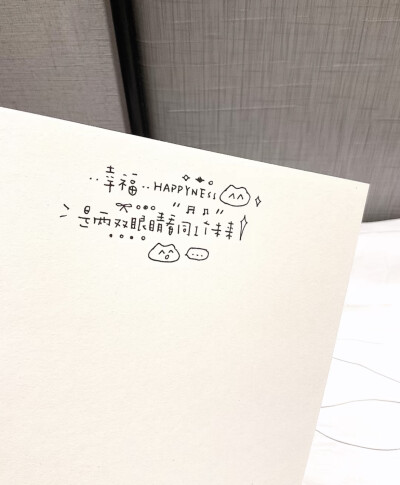 幸福 HAPPYNESS
是两双眼睛看同1个未来